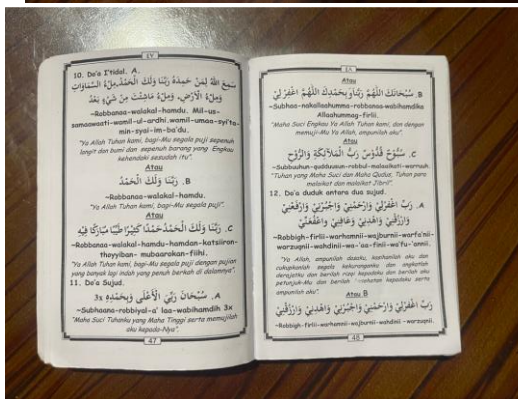 10. Do'a I'tidal. A.
سَمِعَ اللهُ لِمَنْ حَمِدَهُ رَبَّنَا وَلَكَ الْحَمْدُ مِلْءُ السَّمَاوَاتِ
وَمِلْءُ الْأَرْضِ، وَمِلْءُ مَاشِئْتَ مِنْ شَيْءٍ بَعْدُ
~Rabbanaa-walakal-hamdu. Mil-us-
samaawaati-wamil-ul-ardhi.wamil-umaa-syi'ta-
min-syai-im-ba'du.
"Ya Allah Tuhan kami, bagi-Mu segala puji sepenuh
langit dan bumi dan sepenuh barang yang Engkau
kehendaki sesudah itu".
Atau
B. رَبَّنَا وَلَكَ الْحَمْدُ
~Rabbanaa-walakal-hamdu.
"Ya Allah Tuhan kami, bagi-Mu segala puji".
Atau
C. رَبَّنَا وَلَكَ الْحَمْدُ حَمْدًا كَثِيْرًا طَيِّبًا مُبَارَكًا فِيْهِ
~Rabbanaa-walakal-hamdu-hamdan-katsiiron-
thoyyiban- mubaarokan-fiihi.
"Ya Allah Tuhan kami, bagi-Mu segala puji dengan pujian
yang banyak lagi indah yang penuh berkah di dalamnya".
11. Do'a Sujud.
A. سُبْحَانَ رَبِّيَ الْأَعْلَى وَبِحَمْدِهِ 3x
~Subhaana-robbiyal-a' laa-wabihamdih 3x
"Maha Suci Tuhanku yang Maha Tinggi serta memujilah
aku kepada-Nya".
47
Atau
B. سُبْحَانَكَ اللّهُمَّ رَبَّنَا وَبِحَمْدِكَ اللّهُمَّ اغْفِرْلِيْ
~Subhaa-nakallaahumma-robbanaa-wabihamdika
Allaahummag-firlii.
"Maha Suci Engkau Ya Allah Tuhan kami, dan dengan
memuji-Mu Ya Allah, ampunilah aku".
Atau
C. سُبُّوْحٌ قُدُّوْسٌ رَبُّ الْمَلَائِكَةِ وَالرُّوْحِ
~Subbuuhun-qudduusun-robbul-malaaikati-warruuh.
"Tuhan yang Maha Suci dan Maha Qudus, Tuhan para
malaikat dan malaikat Jibril".
12. Do'a duduk antara dua sujud.
A. رَبِّ اغْفِرْلِيْ وَارْحَمْنِيْ وَاجْبُرْنِيْ وَارْفَعْنِيْ
وَارْزُقْنِيْ وَاهْدِنِيْ وَعَافِنِيْ وَاعْفُ عَنِّيْ
~Robbigh-firlii-warhamnii-wajburnii-warfa'nii-
warzuqnii-wahdinii-wa-'aa-finii-wa'fu-'annii.
"Ya Allah, ampunilah dosaku, kasihanilah aku dan
cukupkanlah segala kekuranganku dan angkatlah
derajatku dan berilah rizqi kepadaku dan berilah aku
petunjuk-Mu dan berilah kesehatan kepadaku serta
ampunilah aku".
Atau B
رَبِّ اغْفِرْلِيْ وَارْحَمْنِيْ وَاجْبُرْنِيْ وَاهْدِنِيْ وَارْزُقْنِيْ
~Robbigh-firlii-warhamnii-wajburnii-wahdinii -warzuqnii.
48